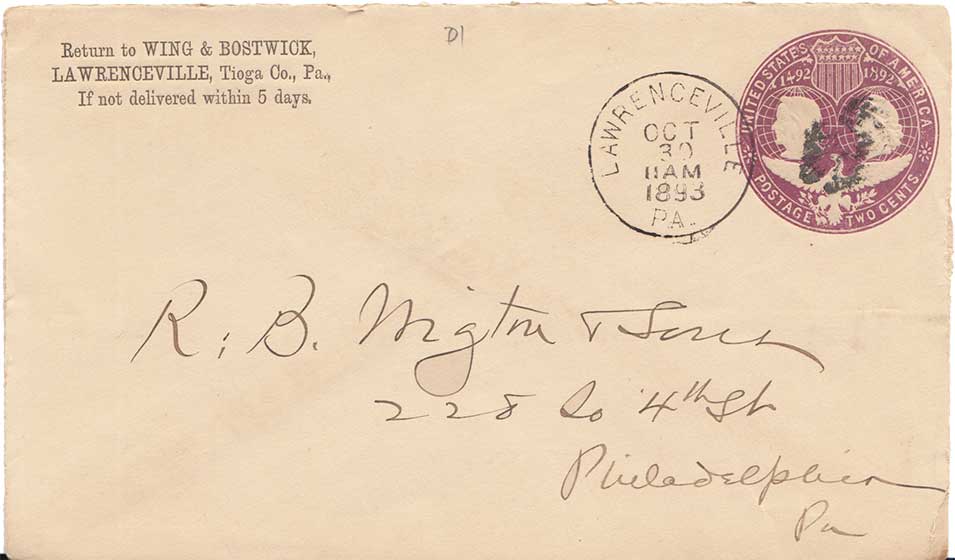 Return to WING & BOSTWICK,
LAWRENCEVILLE, Tioga Co., Pa.,
If not delivered within 5 days.
D1
LAWRENCEVILLE
OCT
30
11AM
1893
PA.
UNITED STATES OF AMERICA
1492 1892
POSTAGE TWO CENTS
R. B. Wigton & Sons
228 So 4th St
Philadelphia
Pa